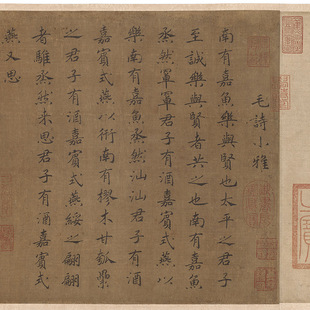 毛詩小雅
南有嘉魚樂與賢也太平之君子
至誠樂與賢者共之也南有嘉魚
烝然罩罩君子有酒嘉賓式燕以
樂南有嘉魚烝然汕汕君子有酒
嘉賓式燕以衎南有樛木甘瓠纍
之君子有酒嘉賓式燕綏之翩翩
者鵻烝然来思君子有酒嘉賓式
燕又思